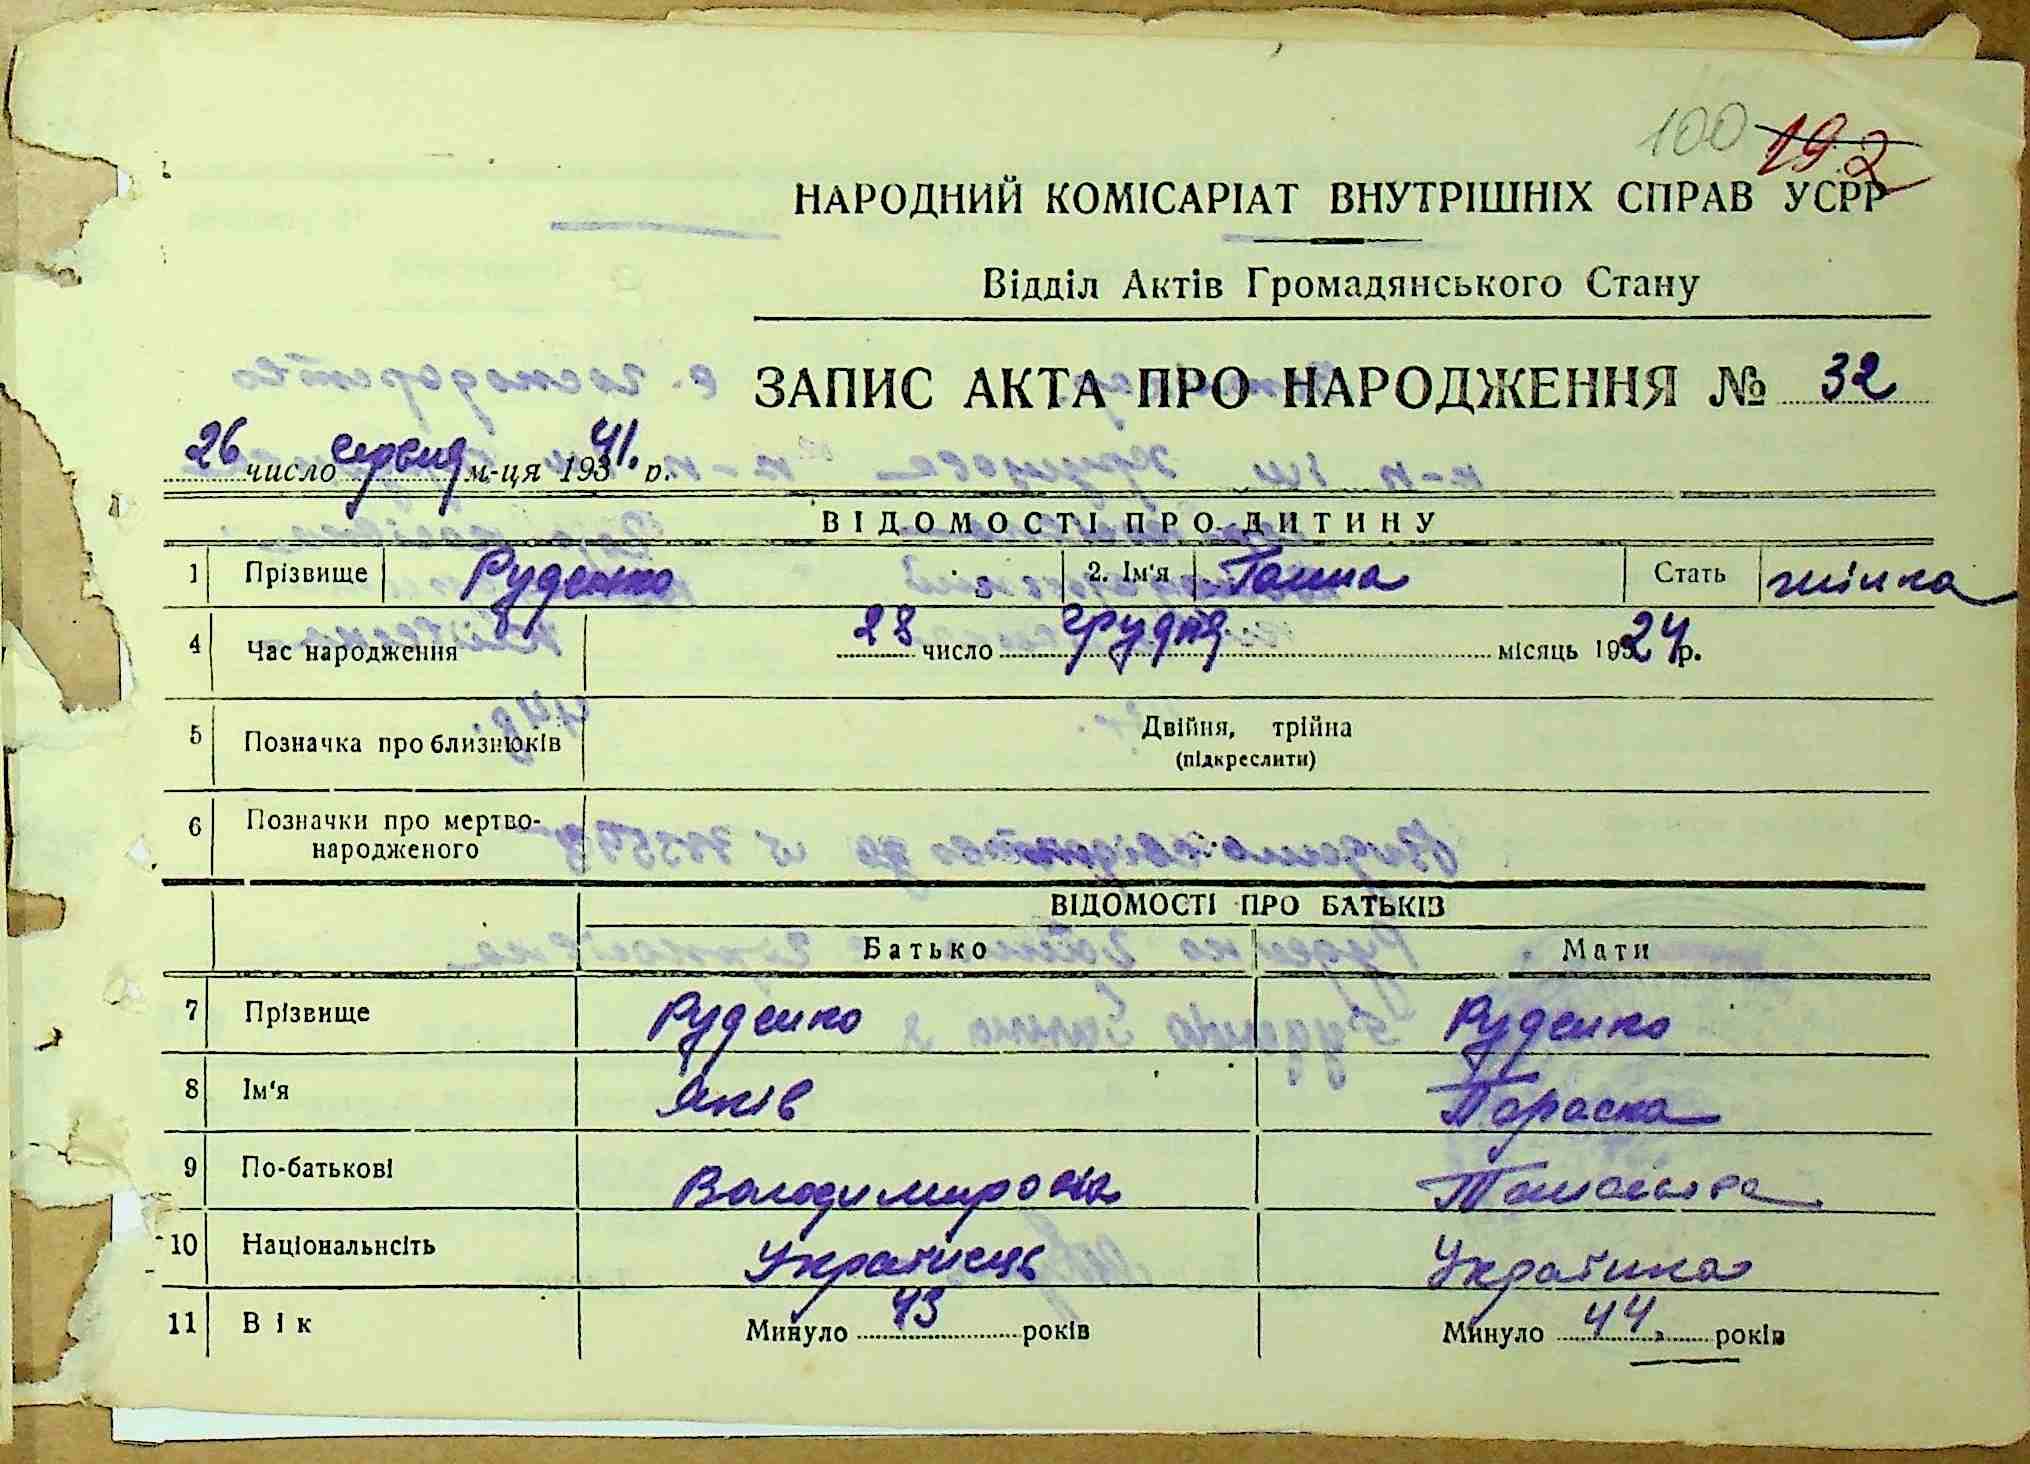 100 192
НАРОДНИЙ КОМІСАРІАТ ВНУТРІШНІХ СПРАВ УСРР
Відділ Актів Громадянського Стану
ЗАПИС АКТА ПРО НАРОДЖЕННЯ № 32
26 число червня м-ця 193 41. р.
ВІДОМОСТІ ПРО ДИТИНУ
1 Прізвище Руденко 2. Ім'я Ганна Стать жінка
4 Час народження 28 число грудня місяць 1924 р.
5 Позначка про близнюків Двійня, трійна
(підкреслити)
6 Позначки про мертво-
народженого
ВІДОМОСТІ ПРО БАТЬКІВ
Батько Мати
7 Прізвище Руденко Руденко
8 Ім'я Яків Параска
9 По-батькові Володимирович
10 Національність Українець Українка
11 Вік Минуло 43 років Минуло 44 років